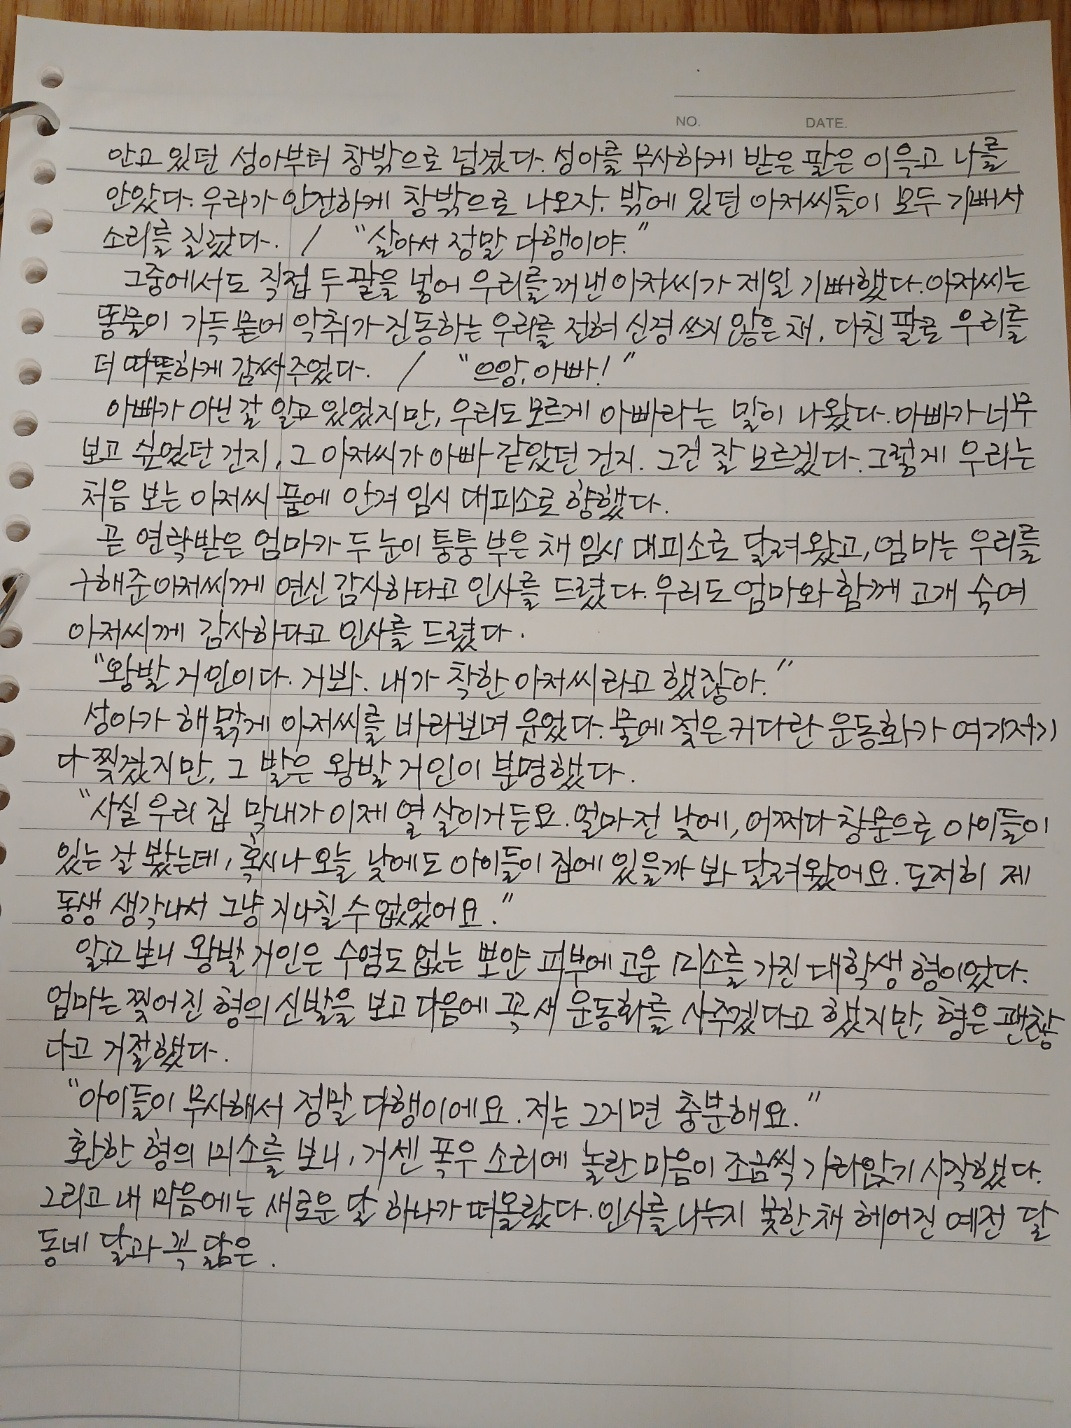 NO. DATE.
안고 있던 성아부터 창밖으로 넘겼다. 성아를 무사하게 받은 팔은 이윽고 나를
안았다. 우리가 안전하게 창밖으로 나오자, 밖에 있던 아저씨들이 모두 기뻐서
소리를 질렀다. / "살아서 정말 다행이야."
그중에서도 직접 두 팔을 넣어 우리를 꺼낸 아저씨가 제일 기뻐했다. 아저씨는
똥물이 가득 묻어 악취가 진동하는 우리를 전혀 신경 쓰지 않은 채, 다친 팔로 우리를
더 따뜻하게 감싸주었다. / "으앙, 아빠!"
아빠가 아닌 걸 알고 있었지만, 우리도 모르게 아빠라는 말이 나왔다. 아빠가 너무
보고 싶었던 건지, 그 아저씨가 아빠 같았던 건지. 그건 잘 모르겠다. 그렇게 우리는
처음 보는 아저씨 품에 안겨 임시 대피소로 향했다.
곧 연락받은 엄마가 두 눈이 퉁퉁 부은 채 임시 대피소로 달려왔고, 엄마는 우리를
구해준 아저씨께 연신 감사하다고 인사를 드렸다. 우리도 엄마와 함께 고개 숙여
아저씨께 감사하다고 인사를 드렸다.
"왕발 거인이다. 거봐. 내가 착한 아저씨라고 했잖아."
성아가 해맑게 아저씨를 바라보며 웃었다. 물에 젖은 커다란 운동화가 여기저기
다 찢겼지만, 그 발은 왕발 거인이 분명했다.
"사실 우리 집 막내가 이제 열 살이거든요. 얼마 전 낮에, 어쩌다 창문으로 아이들이
있는 걸 봤는데, 혹시나 오늘 낮에도 아이들이 집에 있을까 봐 달려왔어요. 도저히 제
동생 생각나서 그냥 지나칠 수 없었어요."
알고 보니 왕발 거인은 수염도 없는 뽀얀 피부에 고운 미소를 가진 대학생 형이었다.
엄마는 찢어진 형의 신발을 보고 다음에 꼭 새 운동화를 사주겠다고 했지만, 형은 괜찮
다고 거절했다.
"아이들이 무사해서 정말 다행이에요. 저는 그거면 충분해요."
환한 형의 미소를 보니, 거센 폭우 소리에 놀란 마음이 조금씩 가라앉기 시작했다.
그리고 내 마음에는 새로운 달 하나가 떠올랐다. 인사를 나누지 못한 채 헤어진 예전 달
동네 달과 꼭 닮은.